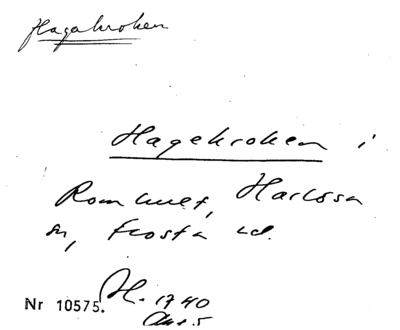 Hagakroken
Hagekroken i
Rommet, Harlösa
sn, Frosta hd.
Nr 10575. H. 1740
Akt 5